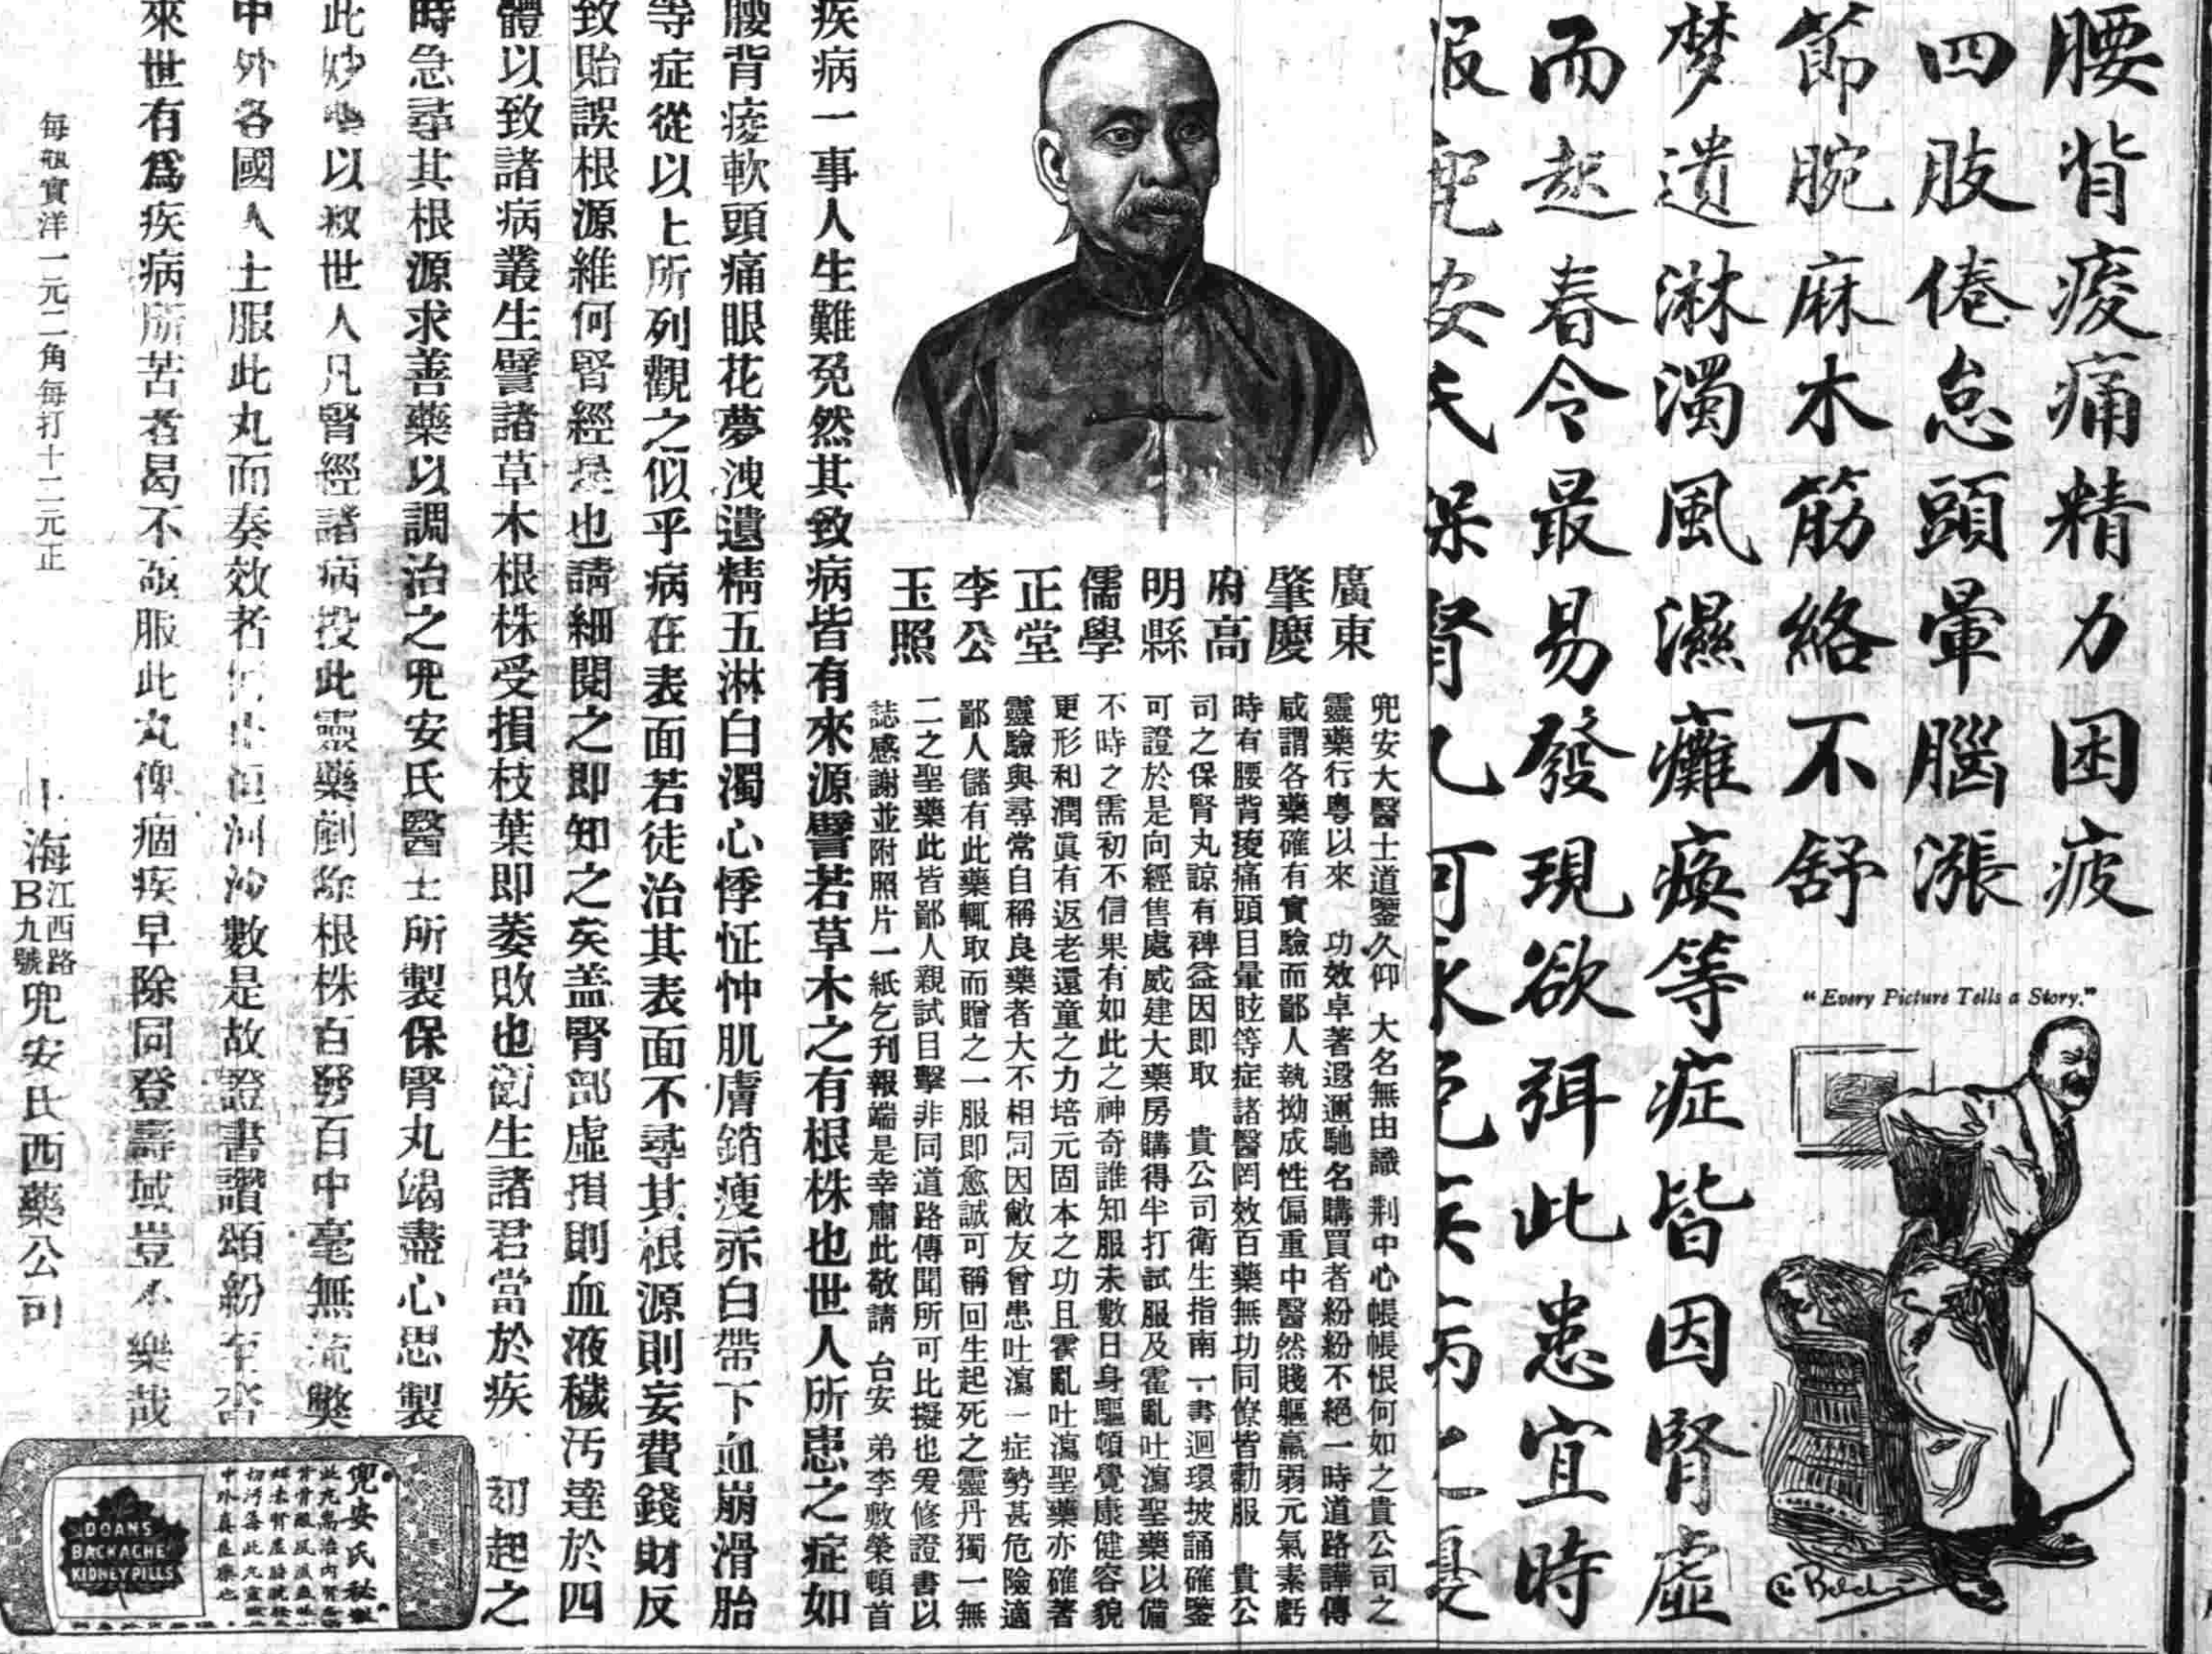 腰背痠痛精力困疲
四肢倦怠頭暈腦漲
節腕麻木筋絡不舒
梦遺淋濁風濕癱瘓等症皆因腎虛
而起春令最易發現欲弭此患宜時
服兜安氏保腎丸可永免疾病之憂
"Every Picture Tells a Story."
廣東
肇慶
府高
明縣
儒學
正堂
李公
玉照
兜安大醫士道鑒久仰 大名無由識 荆中心帳帳恨何如之貴公司之
靈藥行粵以來 功效卓著遐邇馳名購買者紛紛不絕一時道路譁傳
咸謂各藥確有實驗而鄙人執拗成性偏重中醫然賤軀羸弱元氣素虧
時有腰背痠痛頭目暈眩等症諸醫罔效百藥無功同僚皆勸服 貴公
司之保腎丸諒有裨益因即取 貴公司衛生指南一書迴環披誦確鑿
可證於是向經售處威建大藥房購得半打試服及霍亂吐瀉聖藥以備
不時之需初不信果有如此之神奇誰知服未數日身驅頓覺康健容貌
更形和潤眞有返老還童之力培元固本之功且霍亂吐瀉聖藥亦確著
靈驗與尋常自稱良藥者大不相同因敝友曾患吐瀉一症勢甚危險適
鄙人儲有此藥輒取而贈之一服即愈誠可稱回生起死之靈丹獨一無
二之聖藥此皆鄙人親試目擊非同道路傳聞所可比擬也爰修證書以
誌感謝並附照片一紙乞刋報端是幸肅此敬請 台安 弟李敷榮頓首
疾病一事人生難免然其致病皆有來源譬若草木之有根株也世人所患之症如
腰背痠軟頭痛眼花夢洩遺精五淋白濁心悸怔忡肌膚銷瘦赤白帶下血崩滑胎
等症從以上所列觀之似乎病在表面若徒治其表面不尋其根源則妄費錢財反
致貽誤根源維何腎經是也請細閱之即知之矣盖腎部虛損則血液穢汚達於四
體以致諸病叢生譬諸草木根株受損枝葉即萎敗也衛生諸君當於疾 初起之
時急尋其根源求善藥以調治之兜安氏醫士所製保腎丸竭盡心思製
此妙 以救世人凡腎經諸病投此靈藥剷除根株百發百中毫無流弊
中外各國人士服此丸而奏效者 恒河沙數是故證書讚頌紛至沓
來世有爲疾病所苦者曷不敬服此丸俾痼疾早除同登壽域豈不樂哉
每瓶實洋一元二角每打十二元正
上海江西路B九號兜安氏西藥公司
兜安氏秘製
DOANS
BACKACHE
KIDNEY PILLS